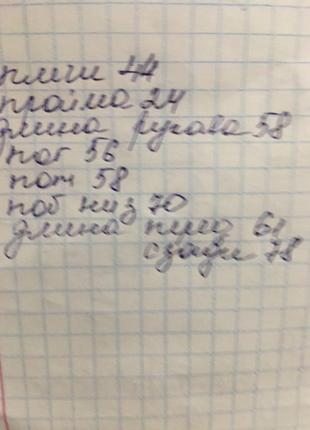 плечи 44
пройма 24
длина рукава 58
пог 56
пот 58
поб низ 70
длина перо 61
сзади 78